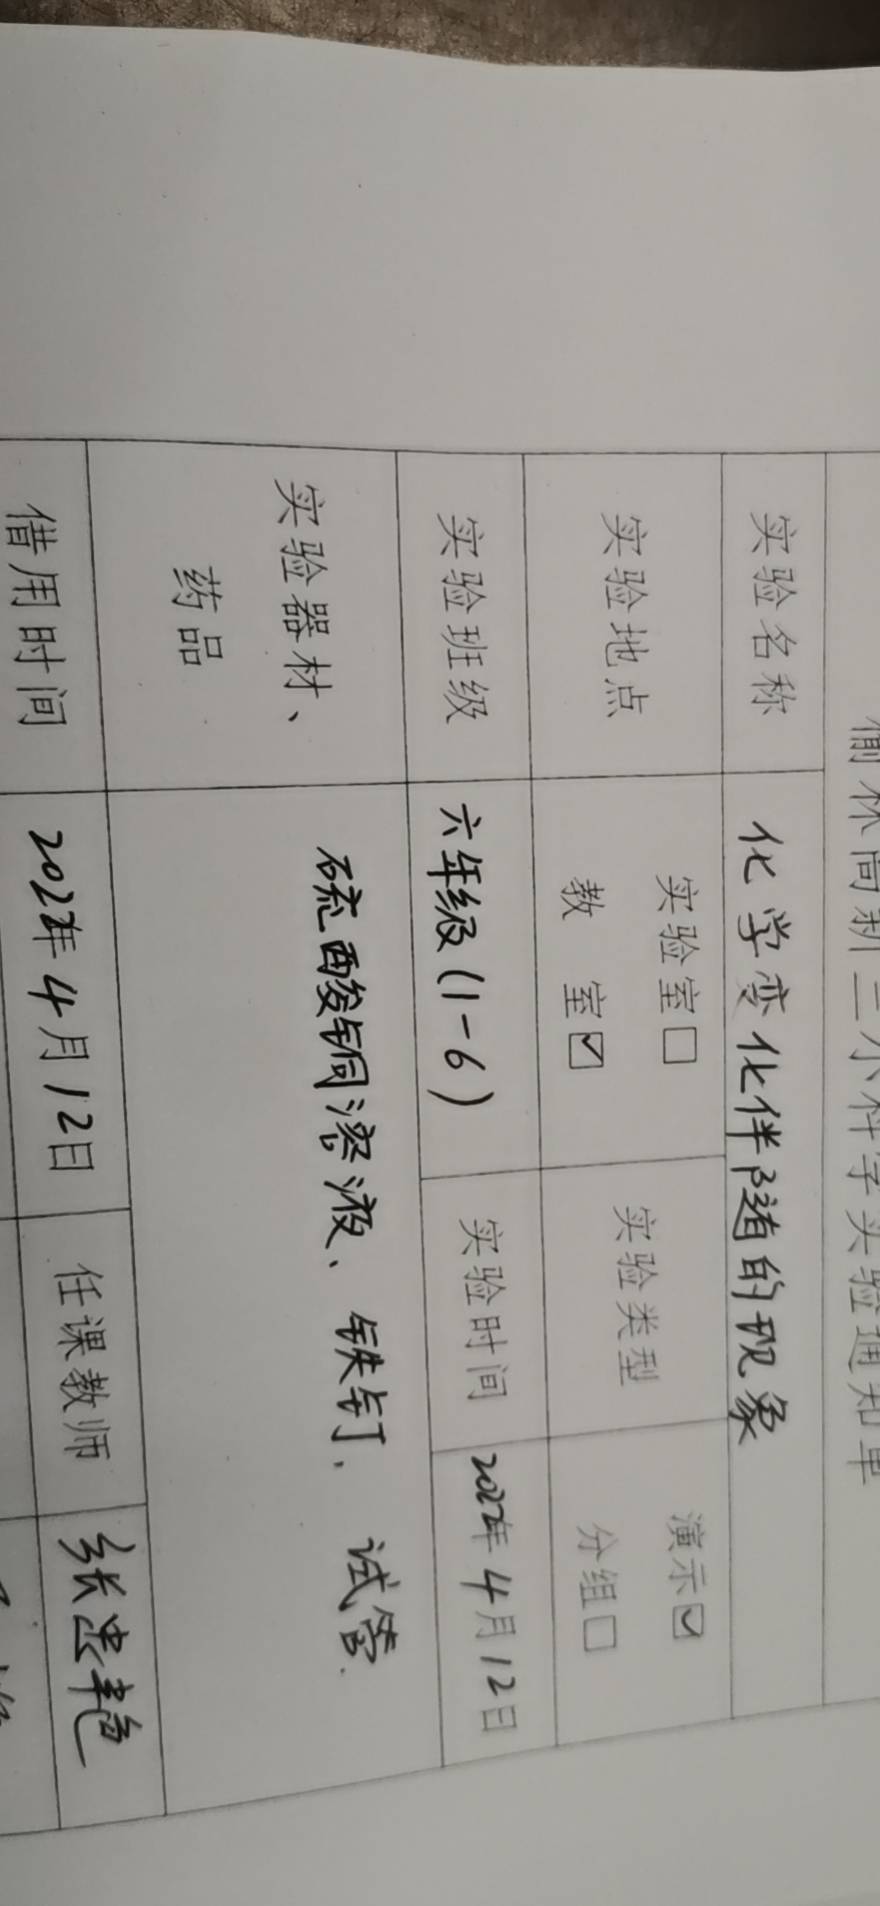 榆林高新三小科学实验通知单
实验名称 化学变化伴随的现象
实验地点 实验室☐ 教 室☑ 实验类型 演示☑ 分组☐
实验班级 六年级(1-6) 实验时间 2022年4月12日
实验器材、药品 硫酸铜溶液、铁钉、试管.
借用时间 2022年4月12日 任课教师 张忠艳